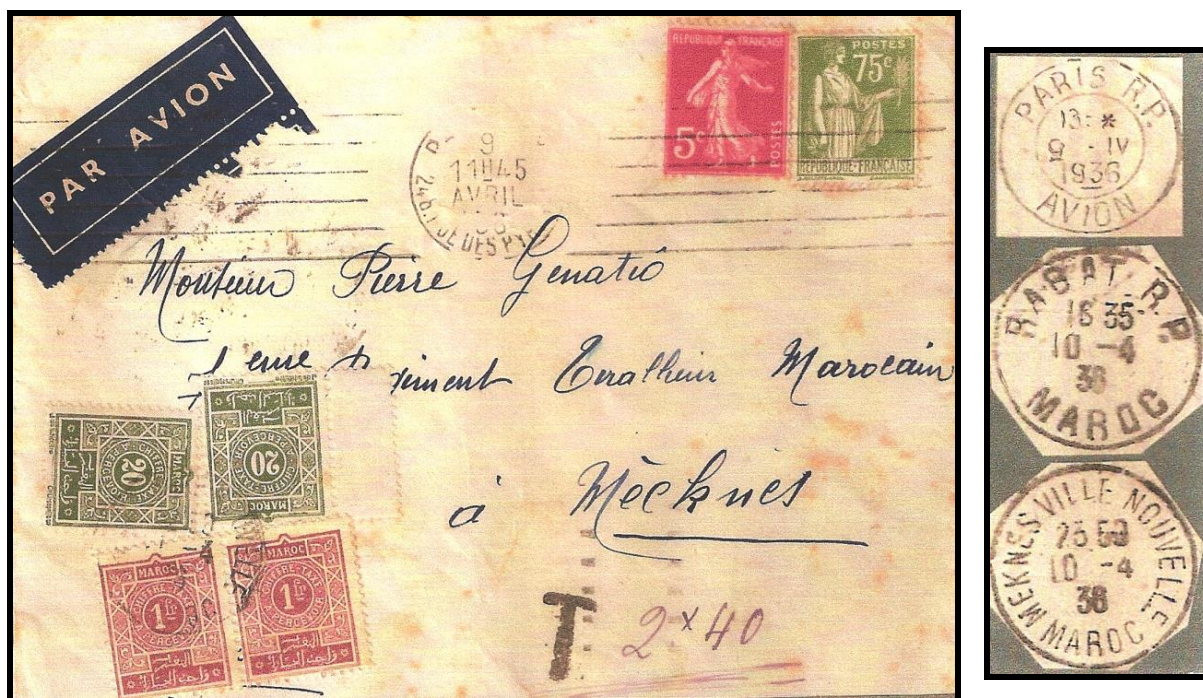 PAR AVION
REPUBLIQUE FRANÇAISE
5c
POSTES
POSTES
75c
REPUBLIQUE-FRANÇAISE
9
11H45
AVRIL
Monsieur Pierre Genatio
Marocain
à Mècknès
MAROC
20
CHIFFRE-TAXE
A PERCEVOIR
MAROC
20
CHIFFRE-TAXE
A PERCEVOIR
MAROC
1Fr
CHIFFRE-TAXE
A PERCEVOIR
MAROC
1Fr
CHIFFRE-TAXE
A PERCEVOIR
T
2×40
PARIS R.P.
13 *
9 - IV
1936
AVION
RABAT R.P.
16 35
10 -4
36
MAROC
MEKNES VILLE NOUVELLE
10 -4
36
MAROC